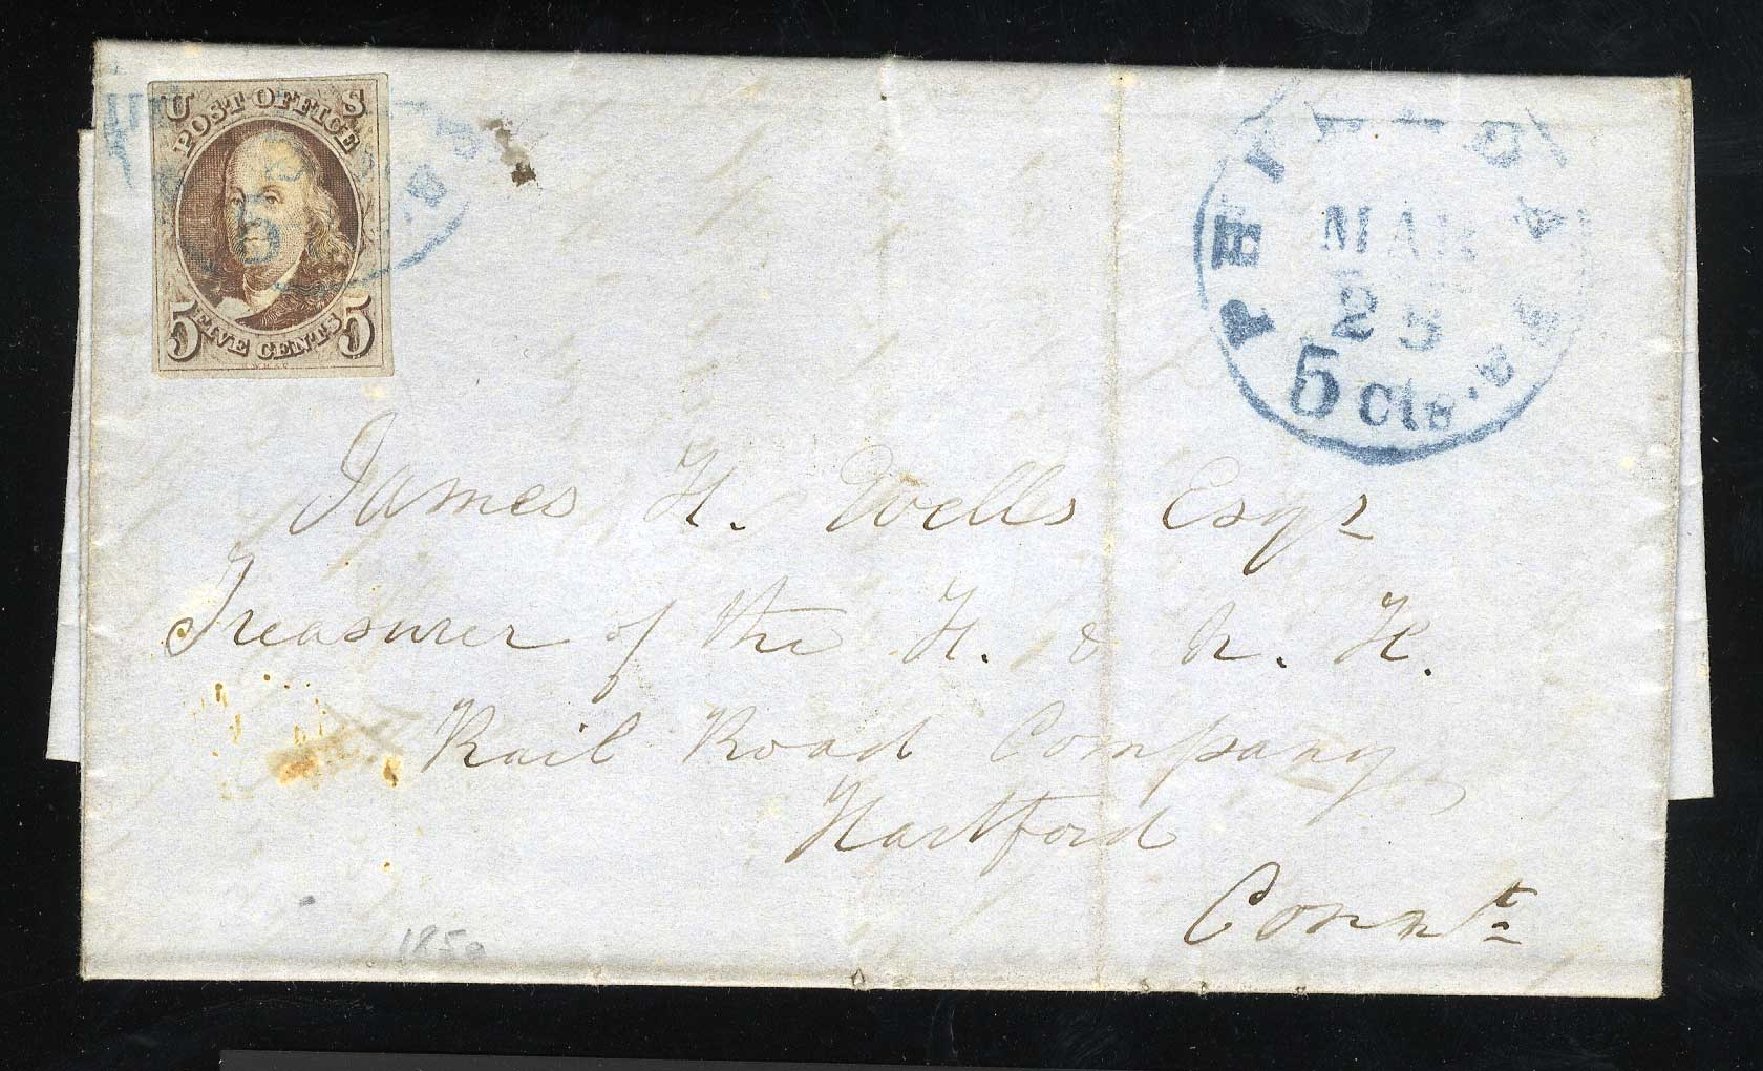 U S
POST OFFICE
5 FIVE CENTS 5
PHILADA
MAR
25
5 cts.
James H. Wells Esqr
Treasurer of the H. & N. H.
Rail Road Company,
Hartford
Connt
1850